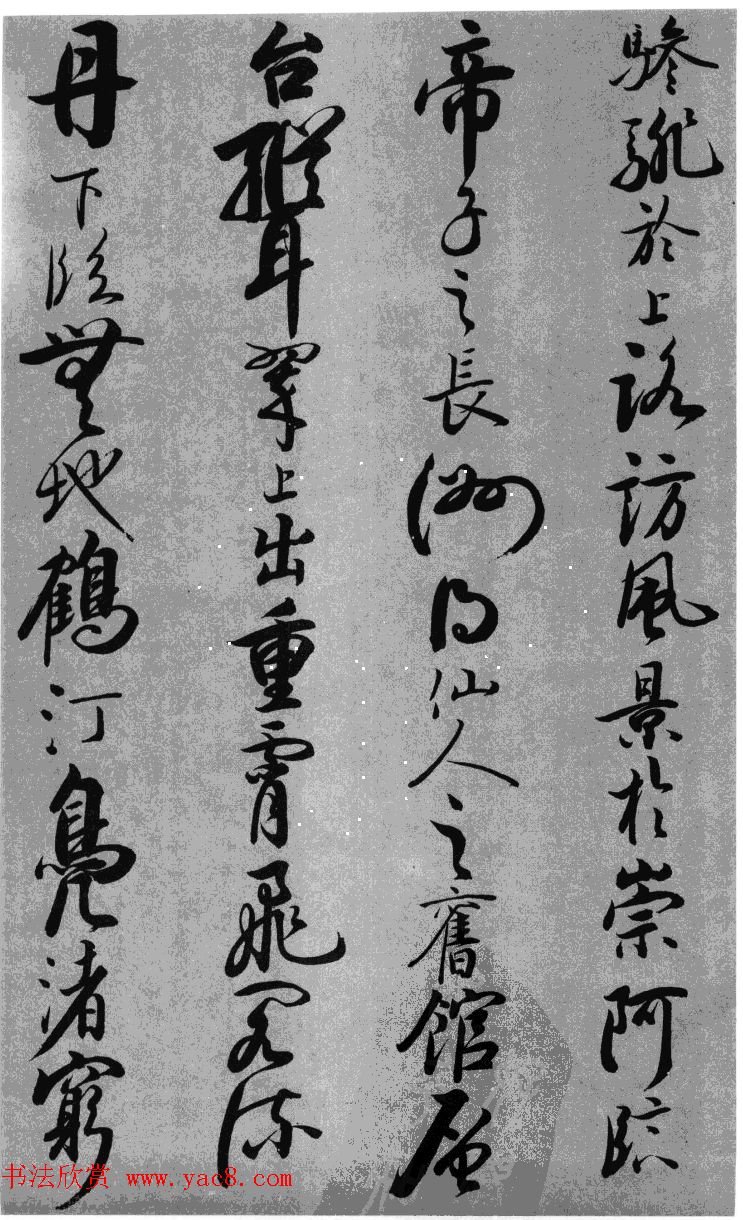 驂騑於上路訪風景於崇阿臨
帝子之長洲得仙人之舊館層
台聳翠上出重霄飛閣流
丹下臨無地鶴汀鳧渚窮
书法欣赏 www.yac8.com